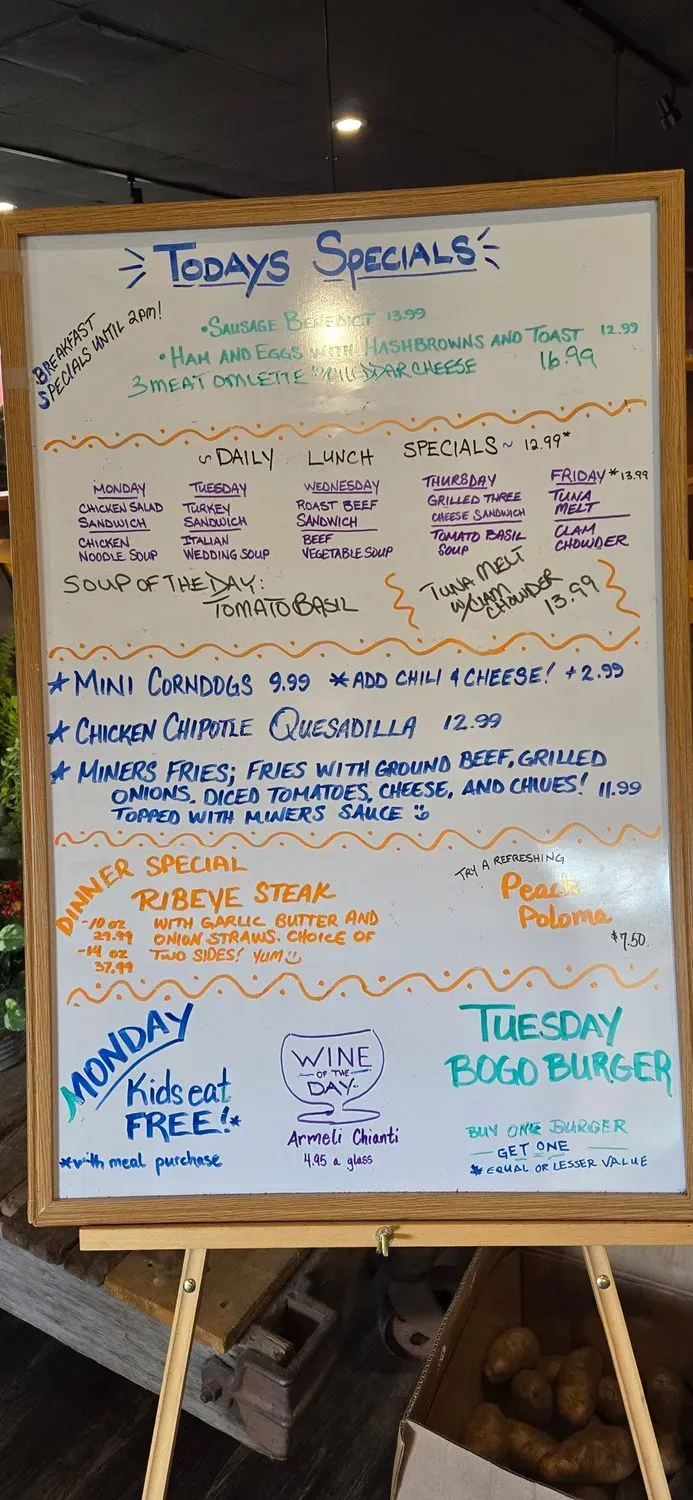 TODAYS SPECIALS
BREAKFAST
SPECIALS UNTIL 2PM!
•SAUSAGE BENEDICT 13.99
•HAM AND EGGS WITH HASHBROWNS AND TOAST 12.99
3 MEAT OMLETTE W/CHEDDAR CHEESE 16.99
~DAILY LUNCH SPECIALS~ 12.99*
MONDAY
CHICKEN SALAD
SANDWICH
CHICKEN
NOODLE SOUP
TUESDAY
TURKEY
SANDWICH
ITALIAN
WEDDING SOUP
WEDNESDAY
ROAST BEEF
SANDWICH
BEEF
VEGETABLE SOUP
THURSDAY
GRILLED THREE
CHEESE SANDWICH
TOMATO BASIL
SOUP
FRIDAY *13.99
TUNA
MELT
CLAM
CHOWDER
SOUP OF THE DAY:
TOMATO BASIL
TUNA MELT
W/CLAM
CHOWDER
13.99
*MINI CORNDOGS 9.99 *ADD CHILI & CHEESE! +2.99
*CHICKEN CHIPOTLE QUESADILLA 12.99
*MINERS FRIES; FRIES WITH GROUND BEEF, GRILLED
ONIONS, DICED TOMATOES, CHEESE, AND CHIVES! 11.99
TOPPED WITH MINERS SAUCE
DINNER SPECIAL
RIBEYE STEAK
-10 oz
29.99
-14 oz
37.99
WITH GARLIC BUTTER AND
ONION STRAWS. CHOICE OF
TWO SIDES! YUM
TRY A REFRESHING
Peach
Poloma
$7.50
MONDAY
Kids eat
FREE!*
*with meal purchase
WINE
-OF THE-
DAY
Armeli Chianti
4.95 a glass
TUESDAY
BOGO BURGER
BUY ONE BURGER
GET ONE
*EQUAL OR LESSER VALUE